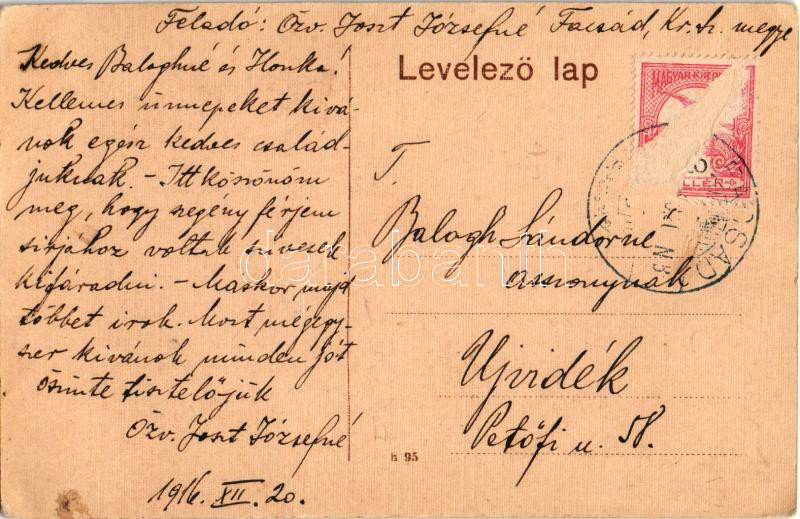 Feladó: Özv. Joszt Józsefné Facsád, Kr. sz. megye
Kedves Baloghné és Ilonka!
Kellemes ünnepeket kivá-
nok egész kedves család-
juknak. - Itt köszönöm
meg, hogy szegény férjem
sirjához voltak szivesek
kifáradni. - Máskor majd
többet irok. Most mégegy-
szer kivánok minden jót
őszinte tisztelőjük
Özv. Joszt Józsefné
1916. XII. 20.
Levelező lap
MAGYAR KIR. PO
LLÉR
FACSÁD
T.
Balogh Sándorné
asszonynak
Ujvidék
Petőfi u. 58.
h 95
darabanth.com